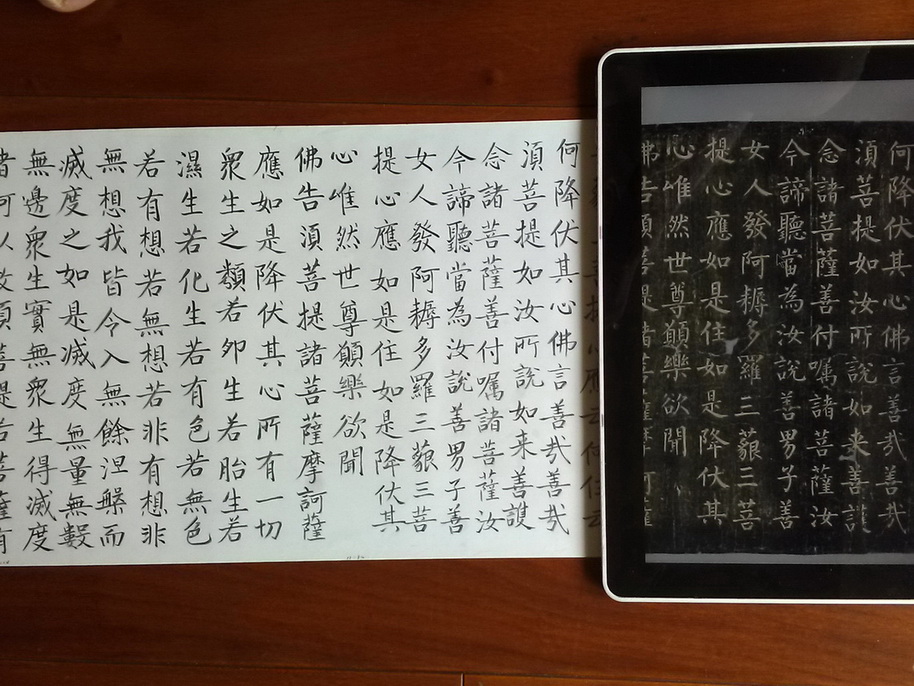 何降伏其心佛言善哉善哉
湏菩提如汝所說如来善護
念諸菩薩善付嘱諸菩薩汝
今諦聽當為汝說善男子善
女人發阿耨多羅三藐三菩
提心應如是住如是降伏其
心唯然世尊願樂欲聞
佛告湏菩提諸菩薩摩訶薩
何降伏其心佛言善哉善哉
湏菩提如汝所說如来善護
念諸菩薩善付嘱諸菩薩汝
今諦聽當為汝說善男子善
女人發阿耨多羅三藐三菩
提心應如是住如是降伏其
心唯然世尊願樂欲聞
佛告湏菩提諸菩薩摩訶薩
應如是降伏其心所有一切
衆生之類若卵生若胎生若
濕生若化生若有色若無色
若有想若無想若非有想非
無想我皆令入無餘涅槃而
滅度之如是滅度無量無數
無邊衆生實無衆生得滅度
者何以故湏菩提若菩薩有